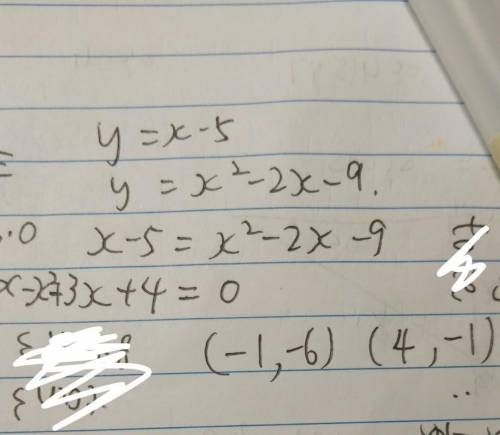 y = x - 5
y = x² - 2x - 9.
x - 5 = x² - 2x - 9
-x² + 3x + 4 = 0
(-1, -6) (4, -1)